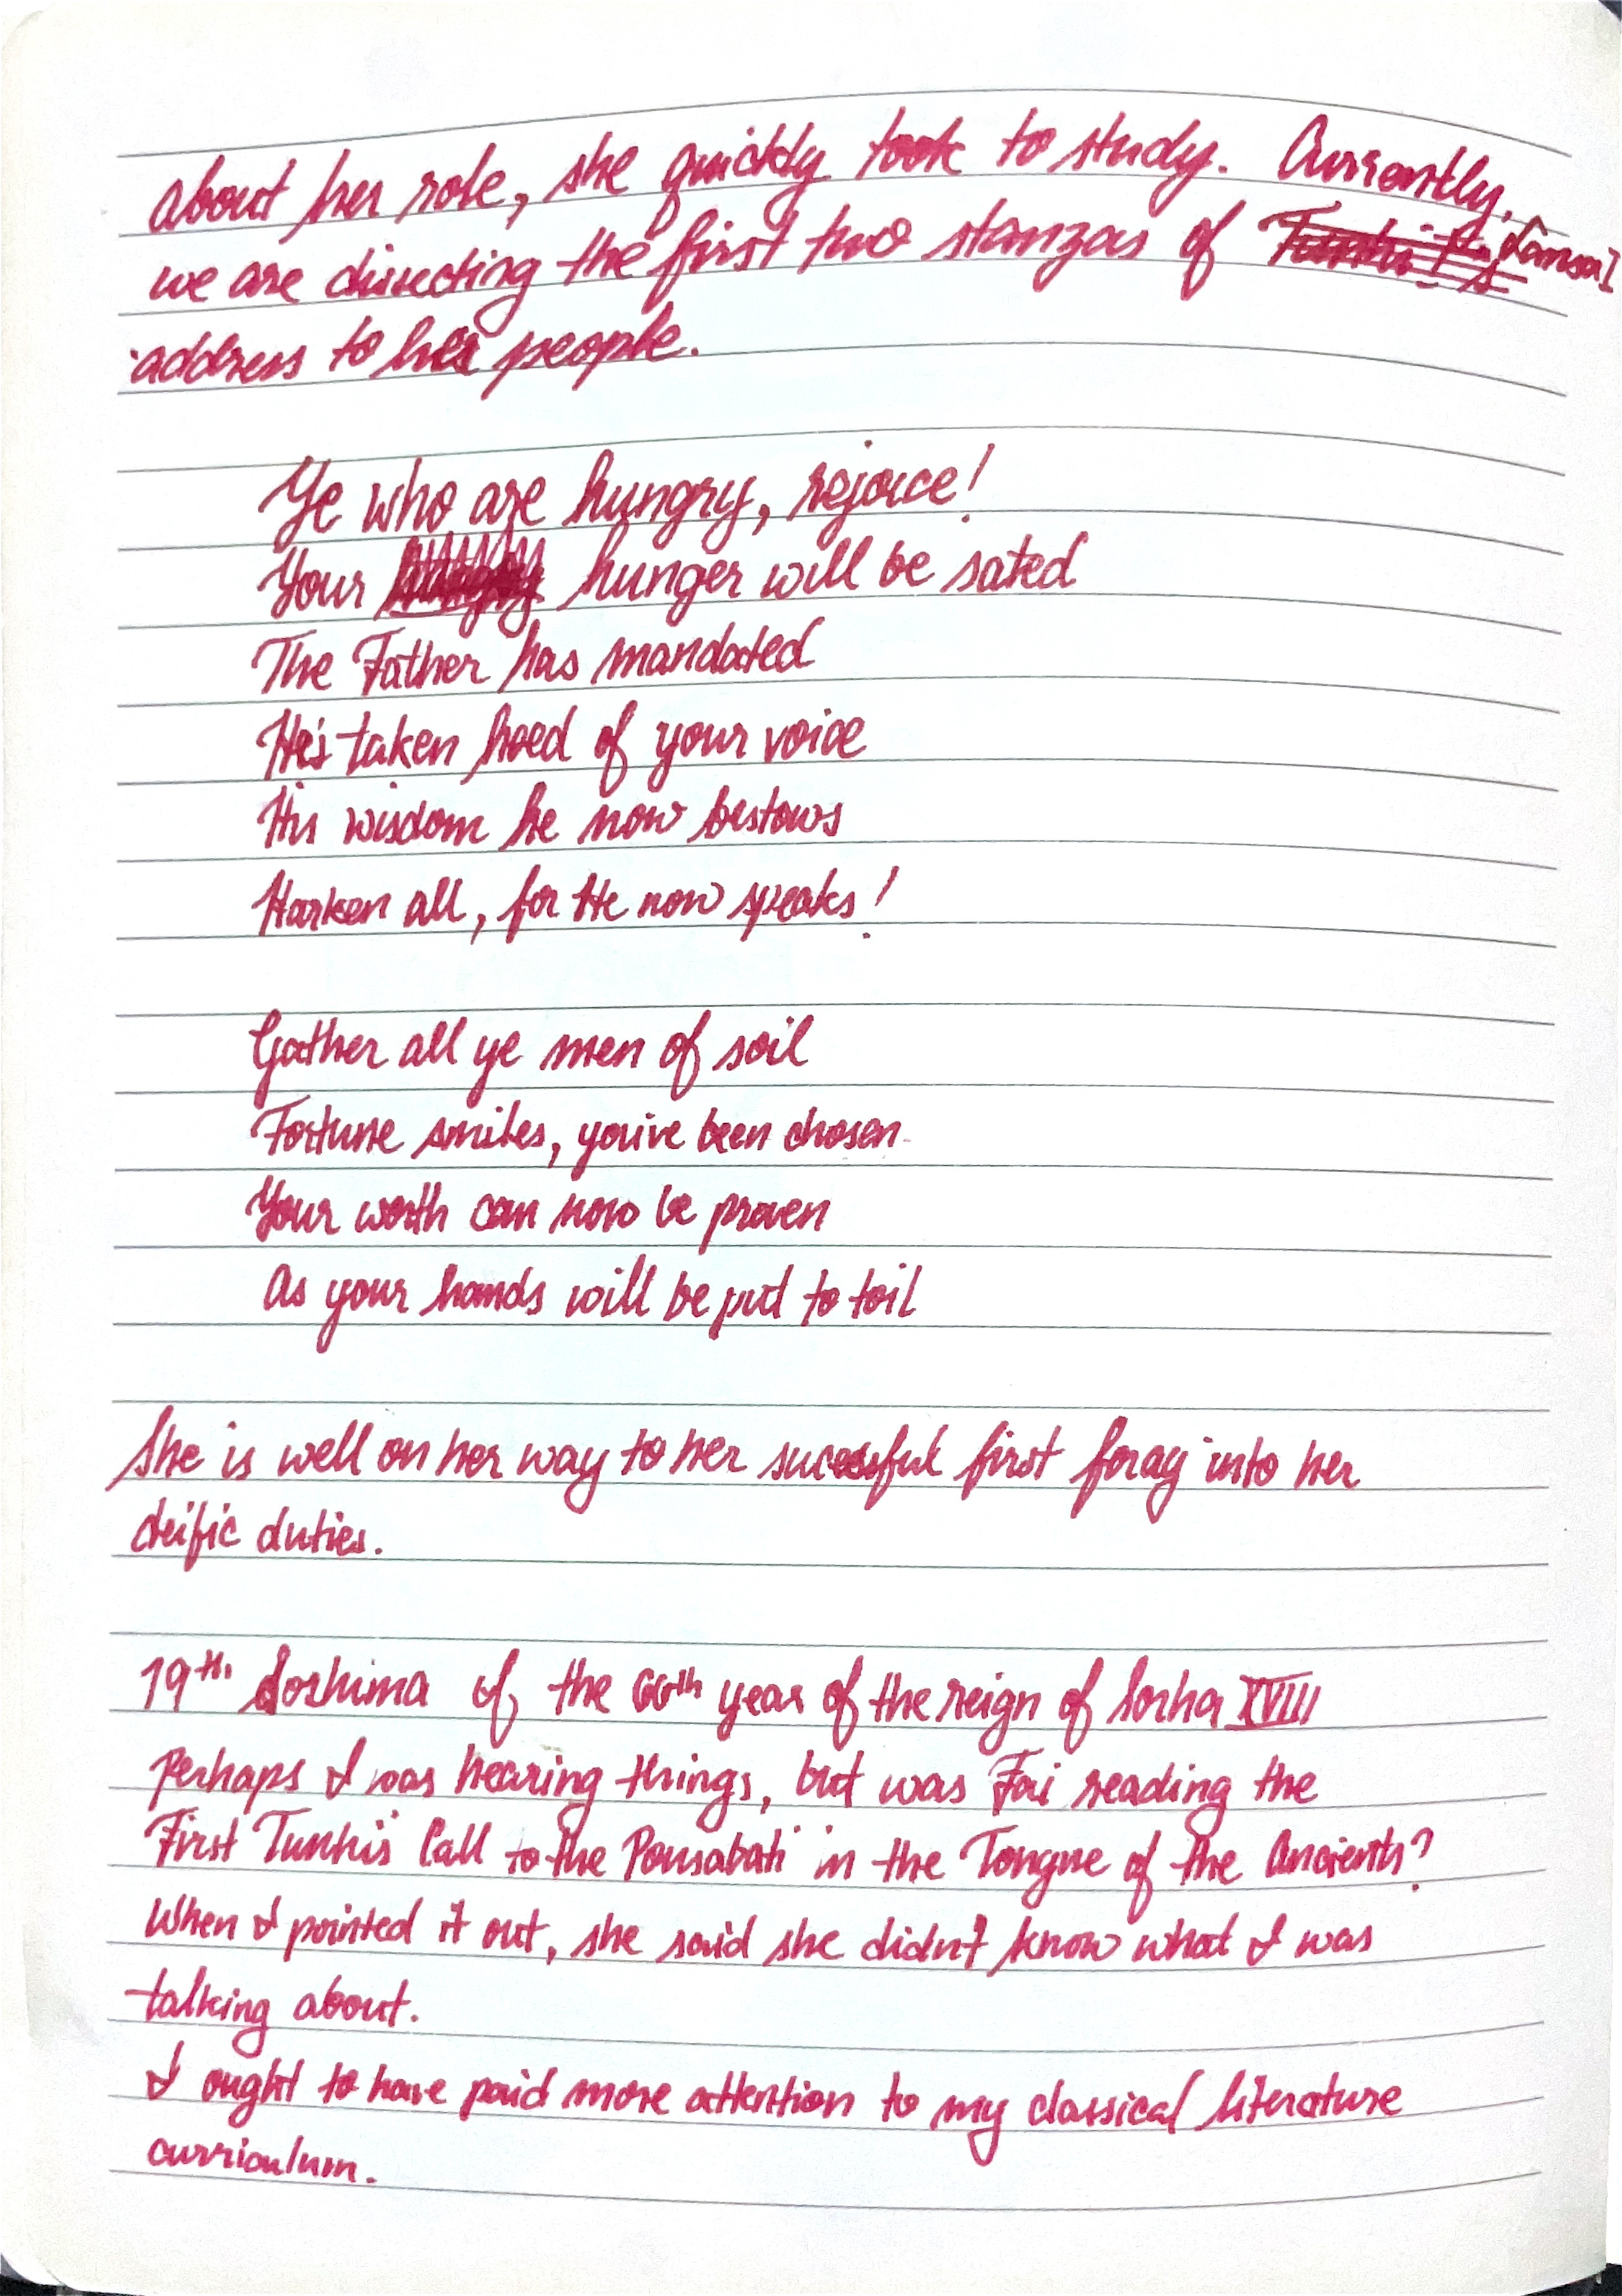 about her role, she quickly took to study. Currently,
we are dissecting the first two stanzas of
address to her people.
Ye who are hungry, rejoice!
Your hunger will be sated
The Father has mandated
He's taken heed of your voice
His wisdom he now bestows
Harken all, for He now speaks!
Gather all ye men of soil
Fortune smiles, you've been chosen
Your worth can now be proven
As your hands will be put to toil
She is well on her way to her sucessful first foray into her
deific duties.
19th. Sorhima of the 66th year of the reign of Sorha XVIII
Perhaps I was hearing things, but was Fai reading the
First Tunhis' Call to the Ponsabati in the Tongue of the Ancients?
When I pointed it out, she said she didn't know what I was
talking about.
I ought to have paid more attention to my classical literature
curriculum.